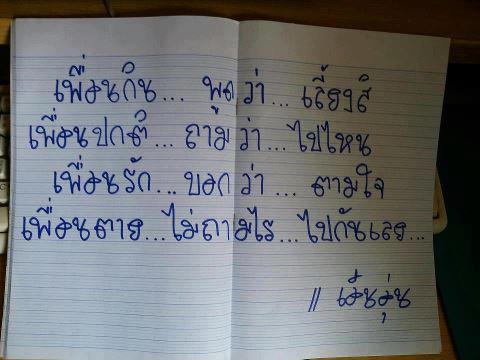 เพื่อนกิน... พูดว่า... เลี้ยงสิ
เพื่อนปกติ... ถามว่า... ไปไหน
เพื่อนรัก... บอกว่า... ตามใจ
เพื่อนตาย... ไม่ถามไร... ไปกันเลย...
//